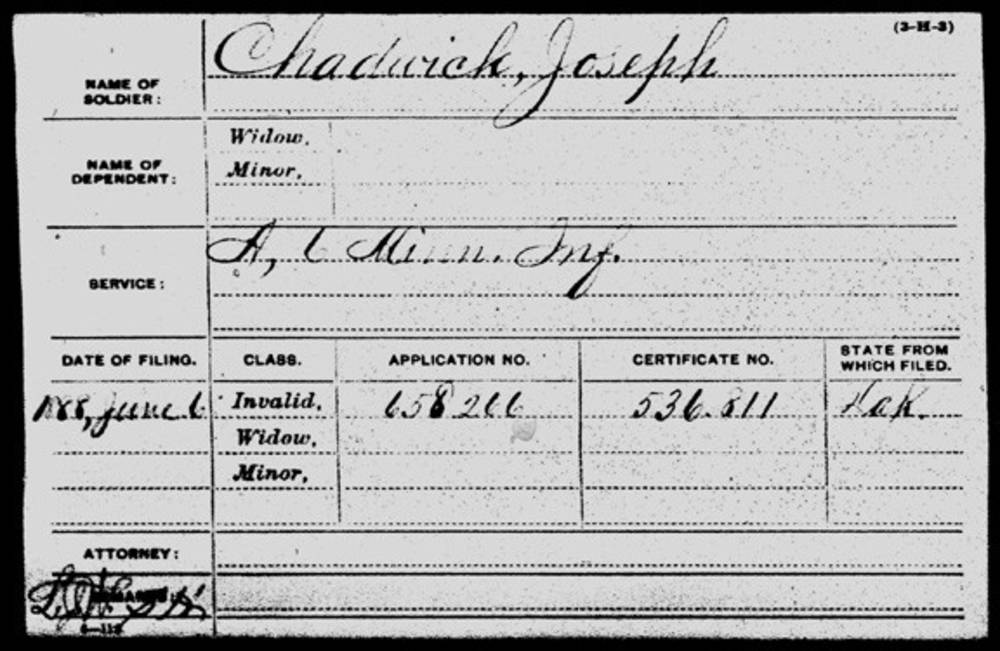 (3-H-3)
NAME OF SOLDIER: Chadwick, Joseph
NAME OF DEPENDENT: Widow,
Minor,
SERVICE: A, 6 Minn. Inf.
DATE OF FILING. CLASS. APPLICATION NO. CERTIFICATE NO. STATE FROM WHICH FILED.
1888, June 6 Invalid, 658 266 536.811 Dak.
Widow,
Minor,
ATTORNEY: